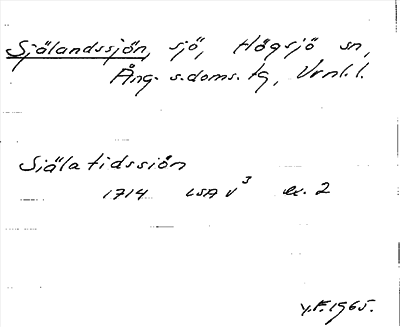 Sjölandssjön, sjö, Högsjö sn,
Ång. s. doms. tg, Vrnl. l.
Siälatidssiön
1714 LSA V³ ex. 2
y.F. 1965.